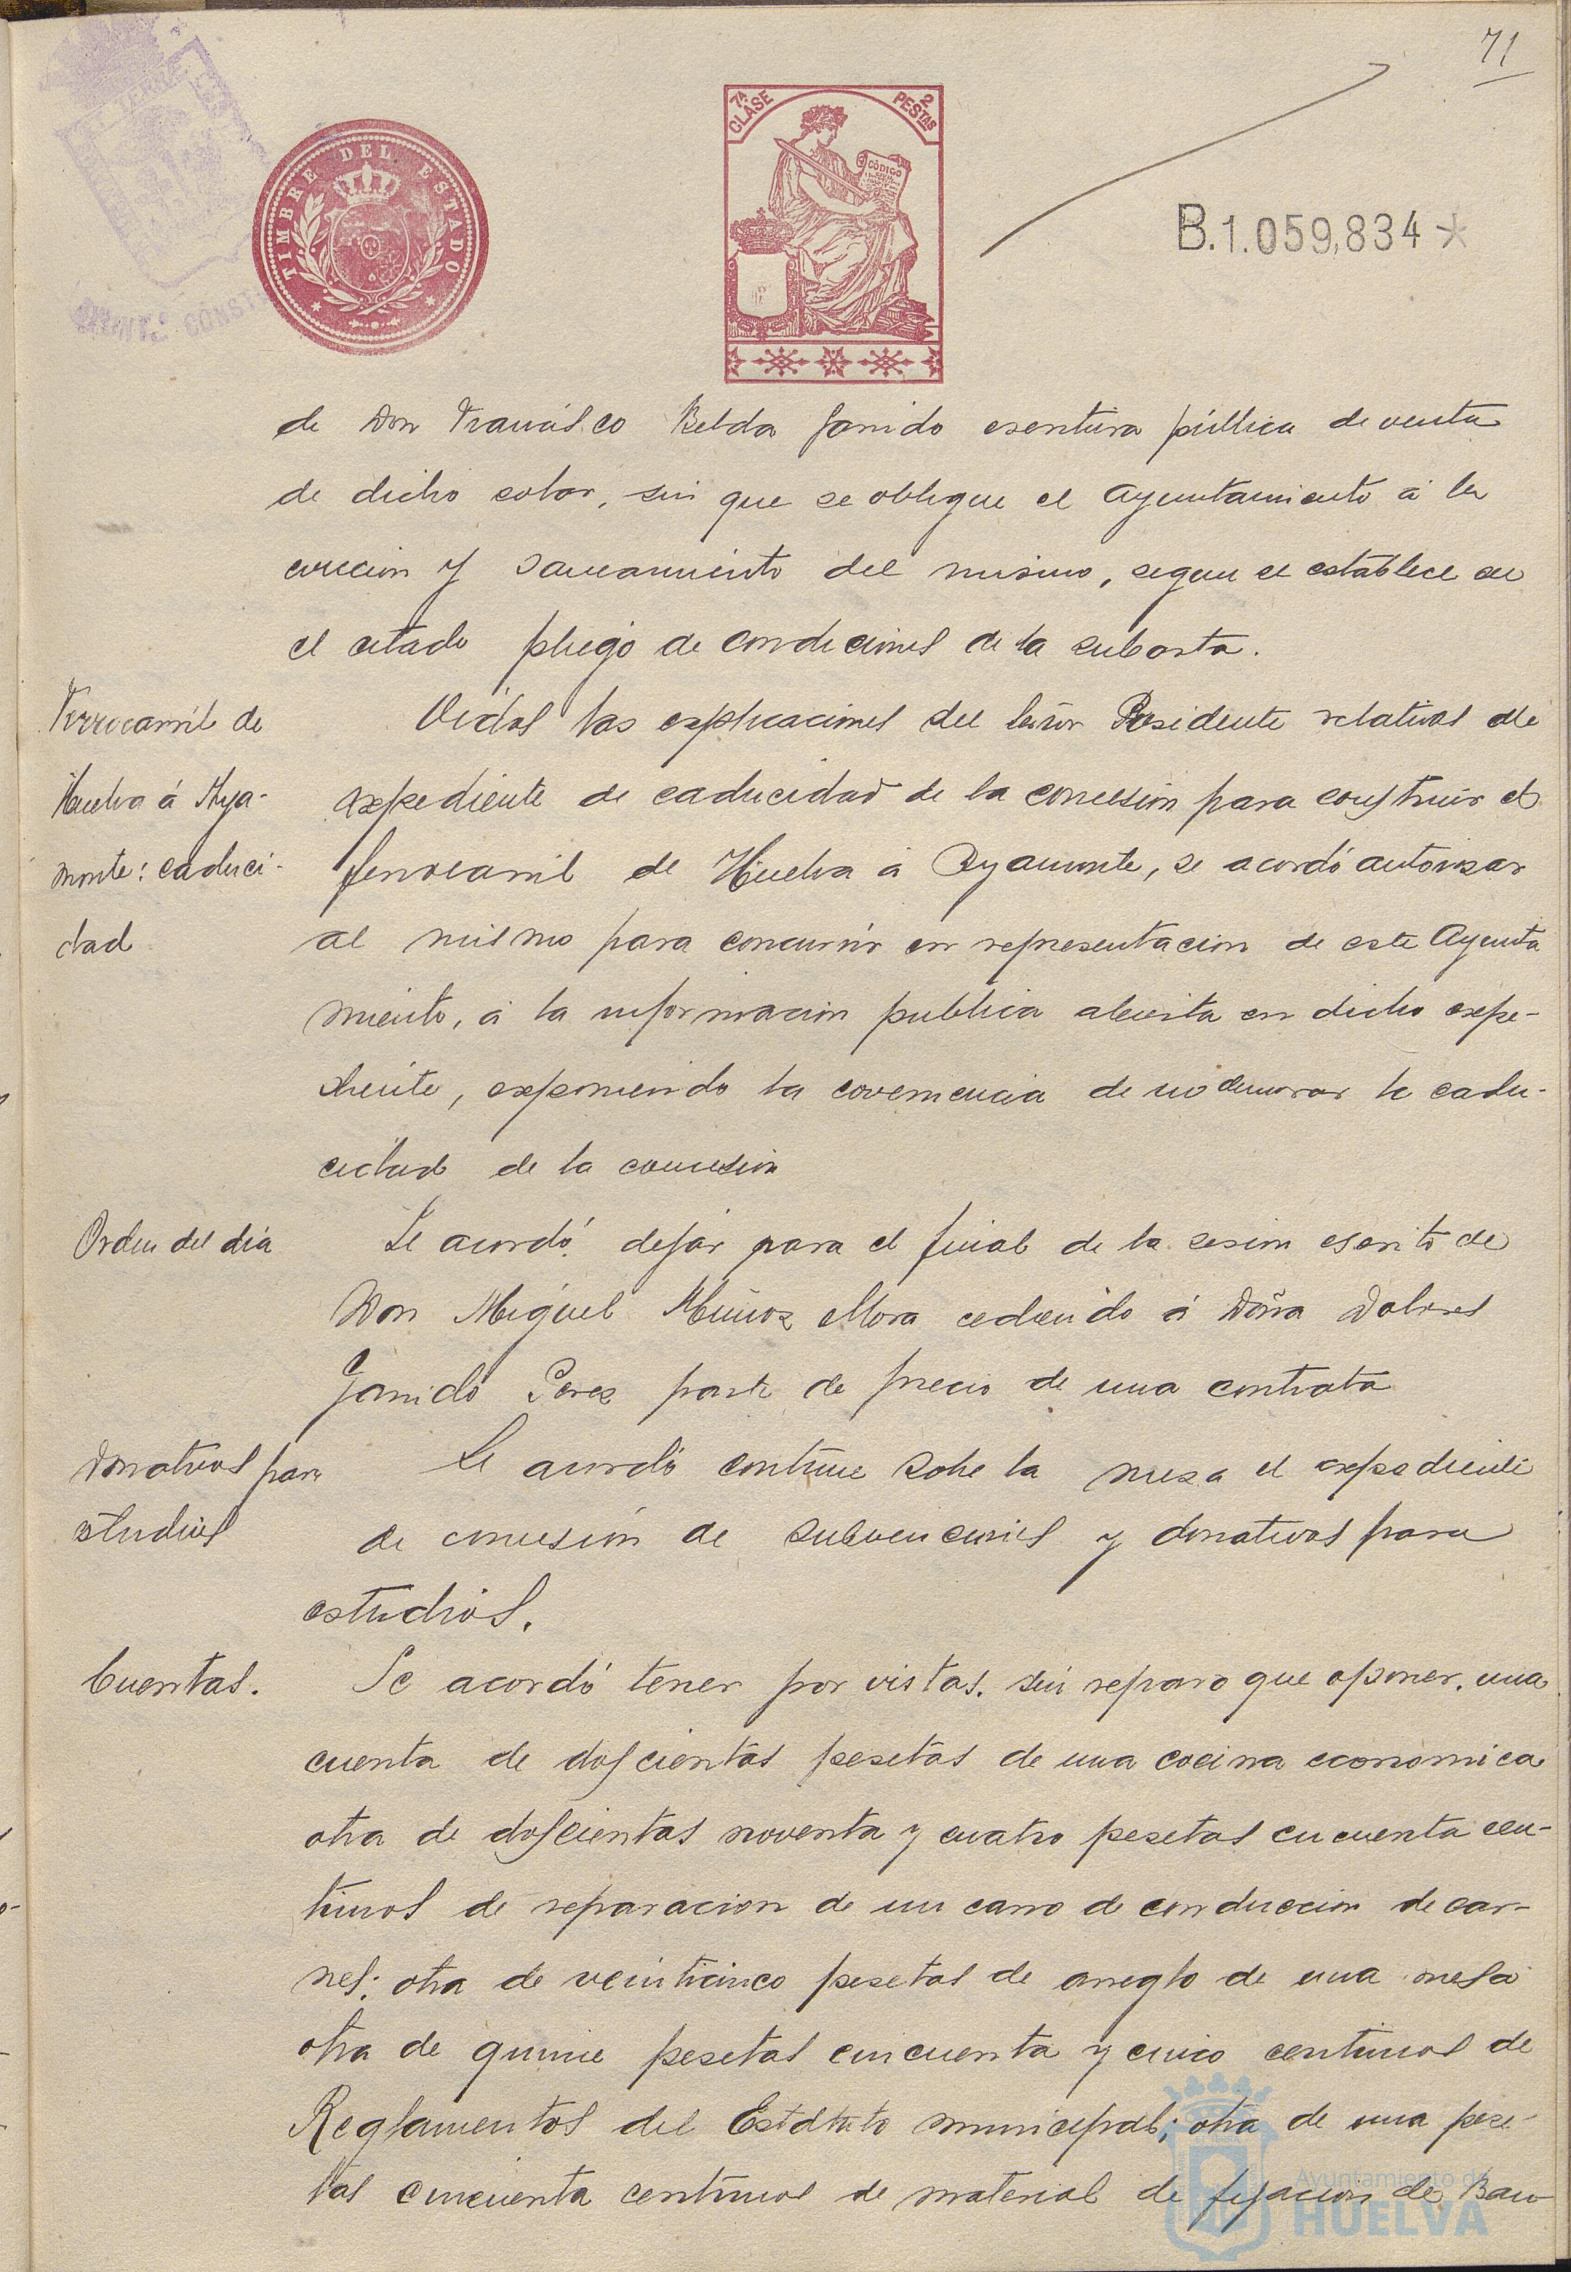 71
7ª CLASE
2 PESTAS
CÓDIGO
TIMBRE DEL ESTADO
B.1.059,834*
de Don Francisco Belda Garrido escritura pública de venta
de dicho solar, sin que se obligue el Ayuntamiento á la
eviccion y saneamiento del mismo, segun se establece en
el citado pliego de condiciones de la subasta.
Ferrocarril de
Huelva á Aya-
monte: caduci-
dad
Oidas las explicaciones del Señor Presidente relativas al
expediente de caducidad de la concesión para construir el
ferrocarril de Huelva á Ayamonte, se acordó autorizar
al mismo para concurrir en representacion de este Ayunta
miento, á la informacion publica abierta en dicho expe-
diente, exponiendo la coveniencia de no demorar la cadu-
cidad de la concesión
Orden del dia
Se acordó dejar para el final de la sesion escrito de
Don Miguel Muñoz Mora cediendo á Doña Dolores
Garrido Perez parte de precio de una contrata
Donativos para
estudios
Se acordó continue sobre la mesa el expediente
de concesión de subvenciones y donativos para
estudios.
Cuentas.
Se acordó tener por vistas, sin reparo que oponer, una
cuenta de doscientas pesetas de una cocina economica
otra de doscientas noventa y cuatro pesetas cincuenta cen-
timos de reparacion de un carro de conduccion de car-
nes; otra de veinticinco pesetas de arreglo de una mesa
otra de quince pesetas cincuenta y cinco centimos de
Reglamentos del Estatuto municipal; otra de una pese-
tas cincuenta centimos de material de fijacion de Ban
Ayuntamiento de
HUELVA